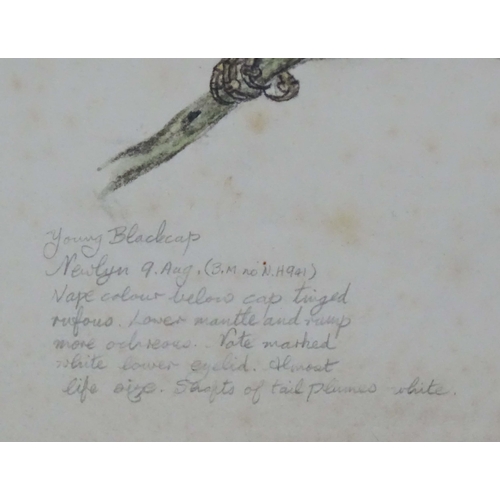 Young Blackcap
Newlyn 9. Aug. (B.M. no N.H941)
Nape colour below cap tinged
rufous. Lower mantle and rump
more ochreous. Note marked
white lower eyelid. Almost
life size. Shafts of tail plumes white.